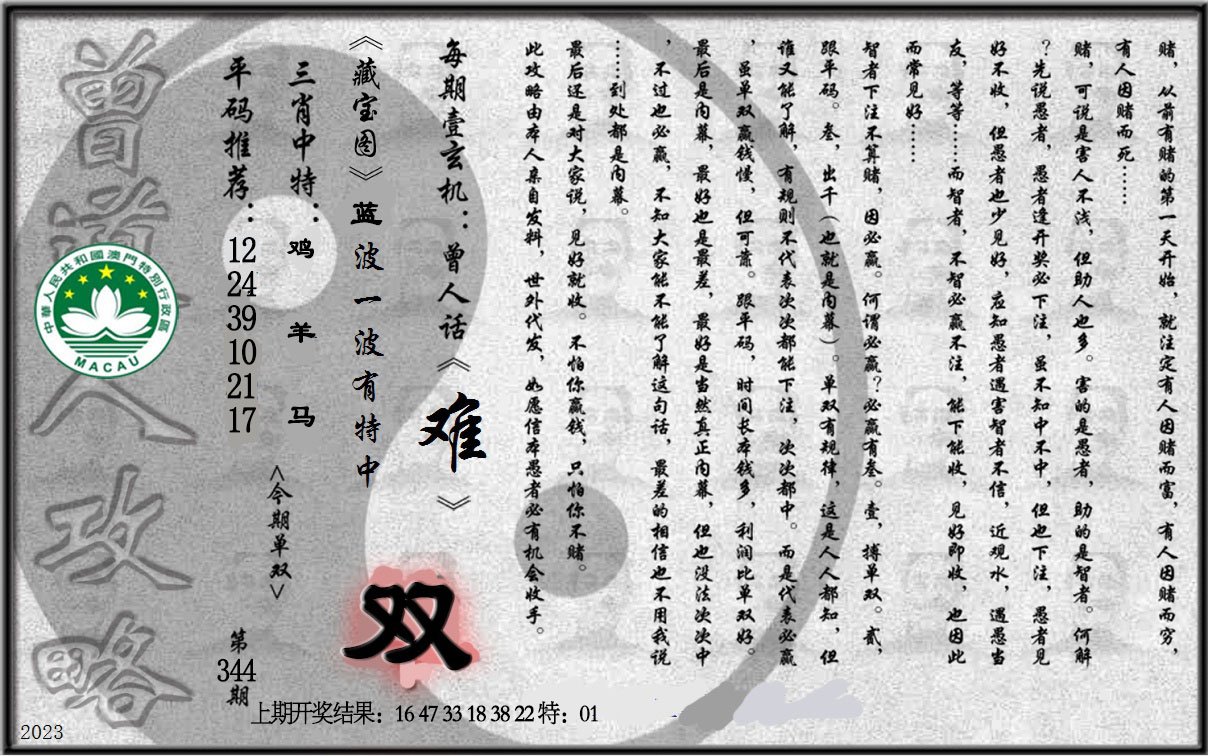 赌，从前有赌的第一天开始，就注定有人因赌而富，有人因赌而穷，
有人因赌而死……
赌，可说是害人不浅，但助人也多。害的是愚者，助的是智者。何解
？先说愚者，愚者逢开奖必下注，虽不知中不中，但也下注，愚者见
好不收，但愚者也少见好，应知愚者遇害智者不信，近观水，遇愚当
友，等等……而智者，不智必赢不注，能下能收，见好即收，也因此
而常见好……
智者下注不算赌，因必赢。何谓必赢？必赢有叁。壹，搏单双。贰，
跟平码。叁，出千（也就是内幕）。单双有规律，这是人人都知，但
谁又能了解，有规则不代表次次都能下注，次次都中。而是代表必赢
，虽单双赢钱慢，但可靠。跟平码，时间长本钱多，利润比单双好。
最后是内幕，最好也是最差，最好是当然真正内幕，但也没法次次中
，不过也必赢，不知大家能不能了解这句话，最差的相信也不用我说
……到处都是内幕。
最后还是对大家说，见好就收。不怕你赢钱，只怕你不赌。
此攻略由本人亲自发料，世外代发，如愿信本愚者必有机会收手。
每期壹玄机：曾人话《难》
《藏宝图》蓝波一波有特中
双
三肖中特：鸡羊马
<今期单双>
平码推荐：12 24 39 10 21 17
第344期
曾道人攻略
中華人民共和國澳門特別行政區
MACAU
上期开奖结果：16 47 33 18 38 22 特：01
2023